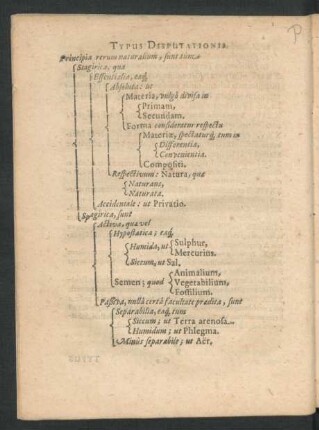 TYPUS DISPUTATIONIS.
Principia rerum naturalium, sunt tum
Stagirica, quæ
Essentialia, eaq;
Absoluta: ut
Materia, vulgò divisa in
Primam,
Secundam.
Forma consideratur respectu
Materiæ, spectaturq; tum in
Differentia,
Convenientia.
Compositi.
Respectivum: Natura, quæ
Naturans,
Naturata.
Accidentale: ut Privatio.
Spagirica, sunt
Activa, quæ vel
Hypostatica; eaq;
Humida, ut
Sulphur,
Mercurius.
Siccum, ut Sal.
Semen; quod
Animalium,
Vegetabilium,
Fossilium.
Passiva, nullâ certâ facultate prædita, sunt
Separabilia, eaq; tum
Siccum; ut Terra arenosa.
Humidum; ut Phlegma.
Minus separabile; ut Aër.